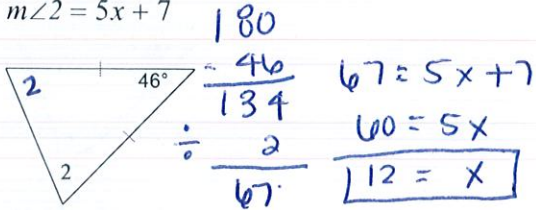 m∠2 = 5x + 7
2
46°
2
180
- 46
134
÷ 2
67
67 = 5x + 7
60 = 5x
12 = x